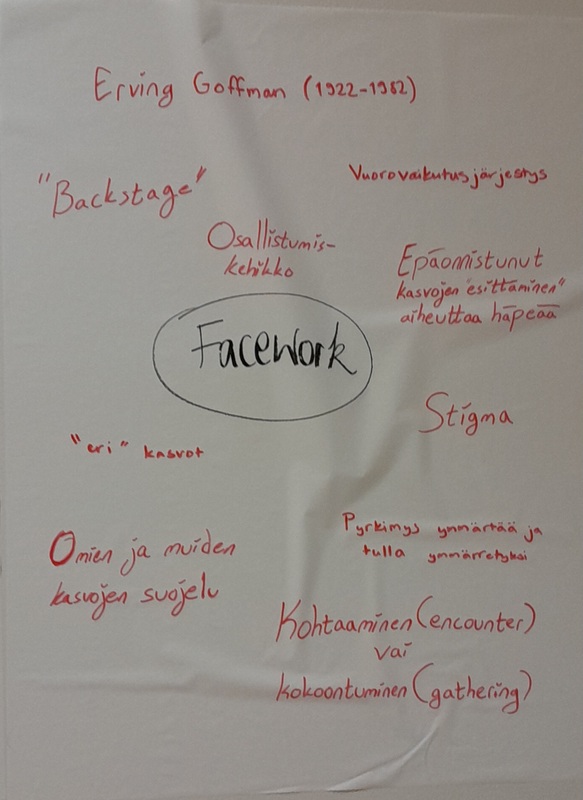 Erving Goffman (1922-1982)
"Backstage"
Vuorovaikutusjärjestys
Osallistumis-
kehikko
Epäonnistunut
kasvojen "esittäminen"
aiheuttaa häpeää
Facework
Stigma
"eri" kasvot
Pyrkimys ymmärtää ja
tulla ymmärretyksi
Omien ja muiden
kasvojen suojelu
Kohtaaminen (encounter)
vai
kokoontuminen (gathering)